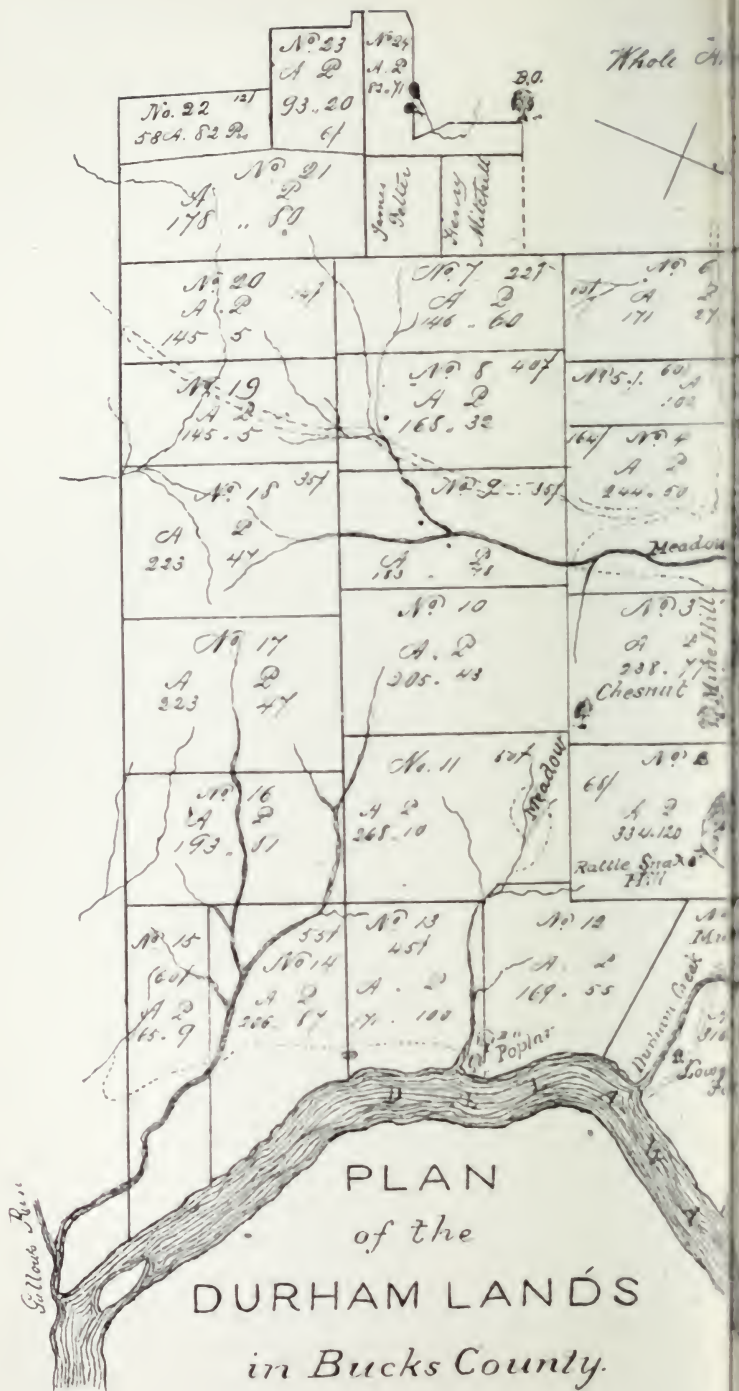 No. 23
A P
93..20
6/
No. 24
A. P
82.71
B.O.
Whole
No. 22 12/
58 A. 82 Prs
No 21
A P
178 .. 80
James
Henry
Mitchell
No 20
A. P
145 5
No. 7 22/
A P
146 . 60
No 6
10/
A
171 27
No 19
A P
145. 5
No. 8 40/
A P
168. 32
No 5. 60/
A
102
16/ No 4
A P
244. 50
No. 18 35/
A P
223 47
No. 9 35/
A P
183 . 78
Meadow
No 17
A P
223 47
No. 10
A. P
205. 43
No 3
A P
238. 77
Chesnut
Mine Hill
No. 16
A P
193. 81
No. 11 50/
A P
268. 10
Meadow
No
65/
A P
334.120
Rattle Snake
Hill
No 15
60/
A P
65. 9
55/
No 14
A P
206. 87
No 13
45/
A. P
71. 100
No 12
A. P
169. 55
Poplar
Durham Creek
316
D E L A W A
Gallows Run
PLAN
of the
DURHAM LANDS
in Bucks County.